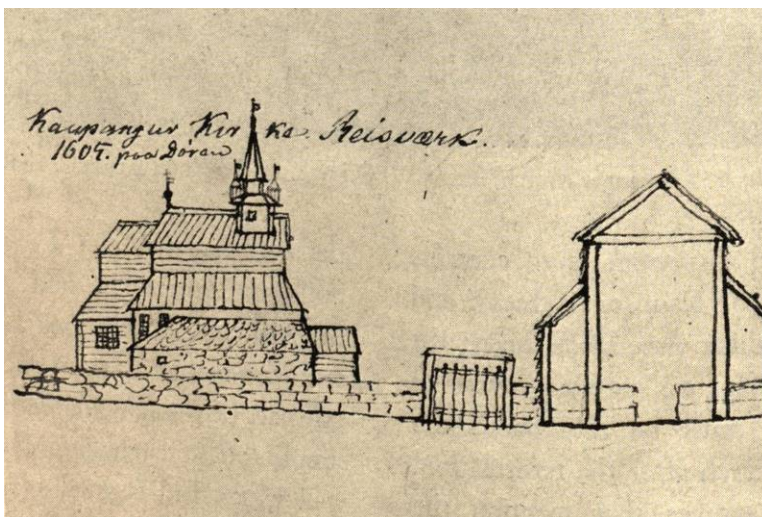 Kaupanger Kirke. Reisværk.
1605. paa Døren